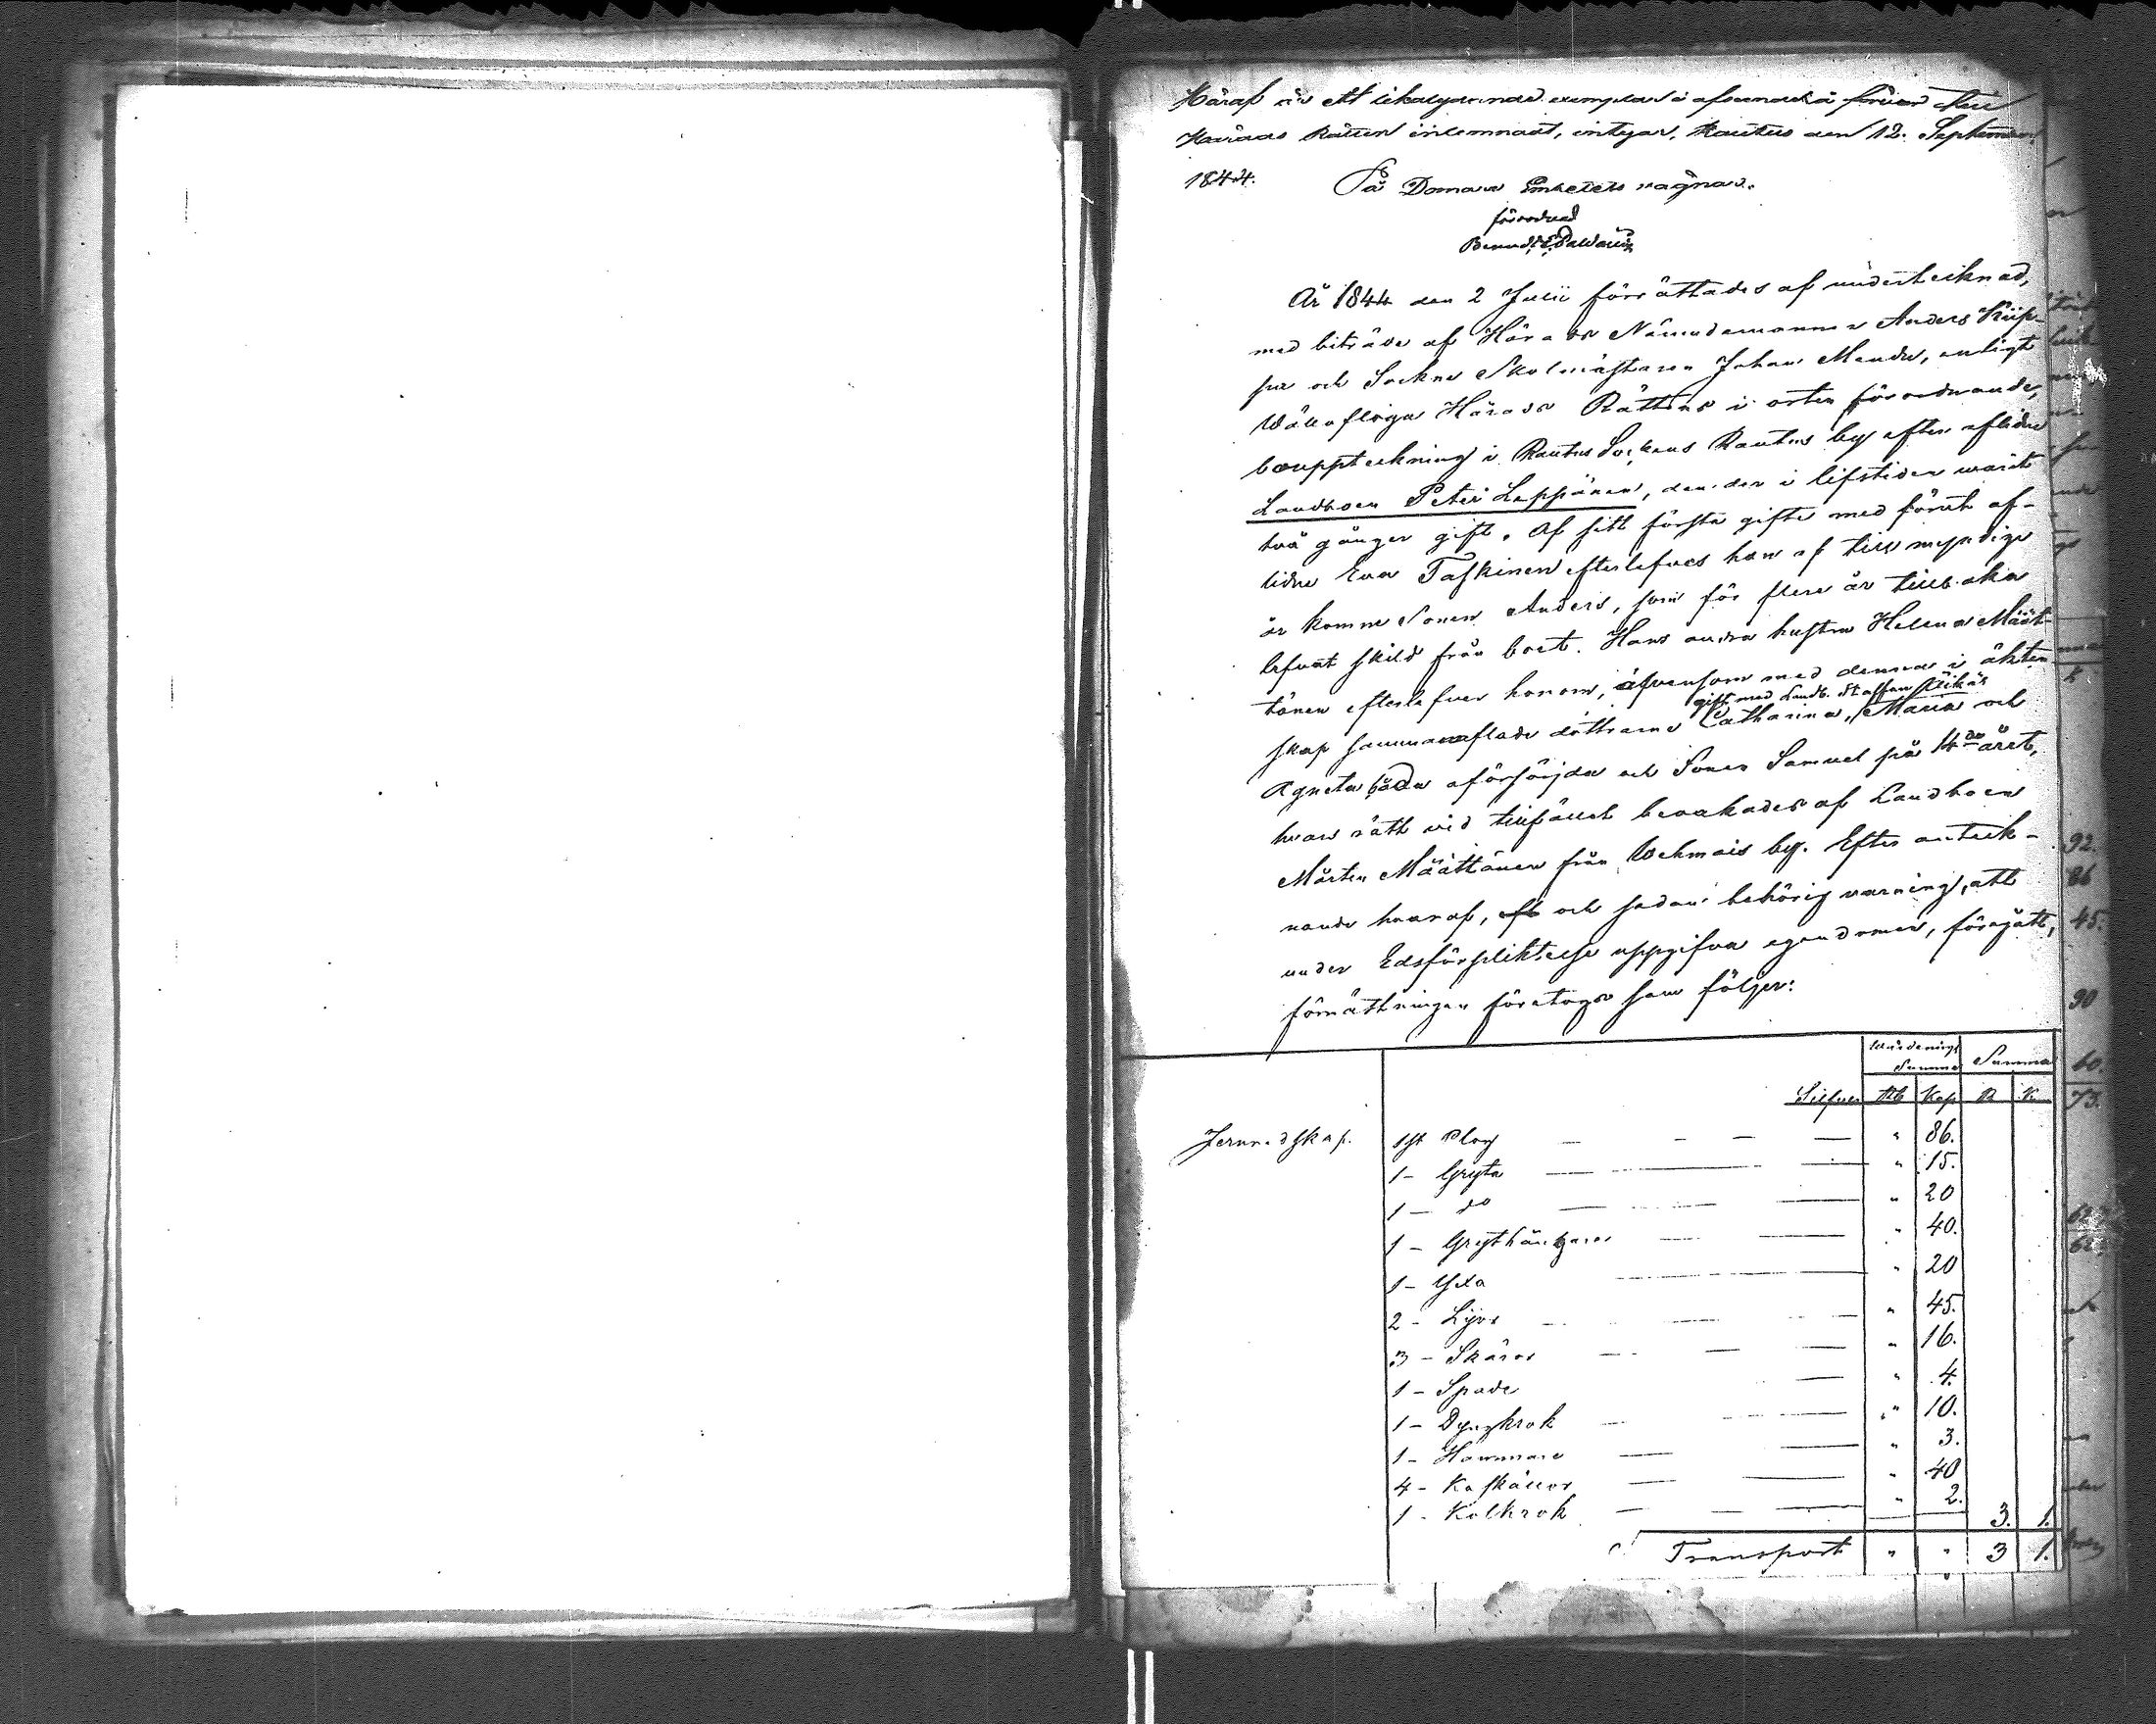 Häraf är ett likalydande exemplar i afseende å förvar till
Härads Rätten inlemnadt, intygar. Rautus den 12. September
1844. På Domare Embetets vägnar.
förordnad
År 1844 den 2 Julii förrättades af undertecknad,
med biträde af Härads Nämndemannen Anders
och Sockne Skolmästaren Johan Mandr, enligt
Wällofliga Härads Rättens i orten förordnande,
bouppteckning i Rautus Sockens Rautus by efter aflidne
Landboen Peter Leppänen, den der i lifstiden warit
två gånger gift. Af sitt första gifte med förut af-
lidne Eva Taskinen efterlefves han af till myndige
år komne Sonen Anders, som för flere år tillbaka
lefvat skild från boet. Hans andra hustru Helena Määt-
tänen efterlefver honom, äfvensom med denna i äkten
gift med Landb. Staffan
skap sammanaflade döttrarne Catharina, Maria och
Agneta båda oförsörjda och Sonen Samuel på 14de året,
hvars rätt vid tillfället bevakades af Landboen
Mårten Määttänen från Wehmais by. Efter anteck-
nande hvaraf, och sedan behörig varning, att
under Edsförpliktelse uppgifva egendomen, föregått,
förrättningen företogs som följer:
Wärderings
Summa Summa
Silfver Rb Kop R K.
Jernredskap. 1 st Plog — - — — " 86.
1 - Gryta — — " 15.
1 — do — — " 20
1 - Grythängare — — " 40.
1 - Yxa — " 20
2 - Lijor — — " 45.
3 - Skäror — — — " 16.
1 - Spade — " 4.
1 - Dyngkrok — — " 10.
1 - Hammare — — " 3.
4 - — — " 40
1 - Kolkrok — — — " 2. 3. 1.
Transport " " 3 1.
92.
86
45.
90
60.
75.